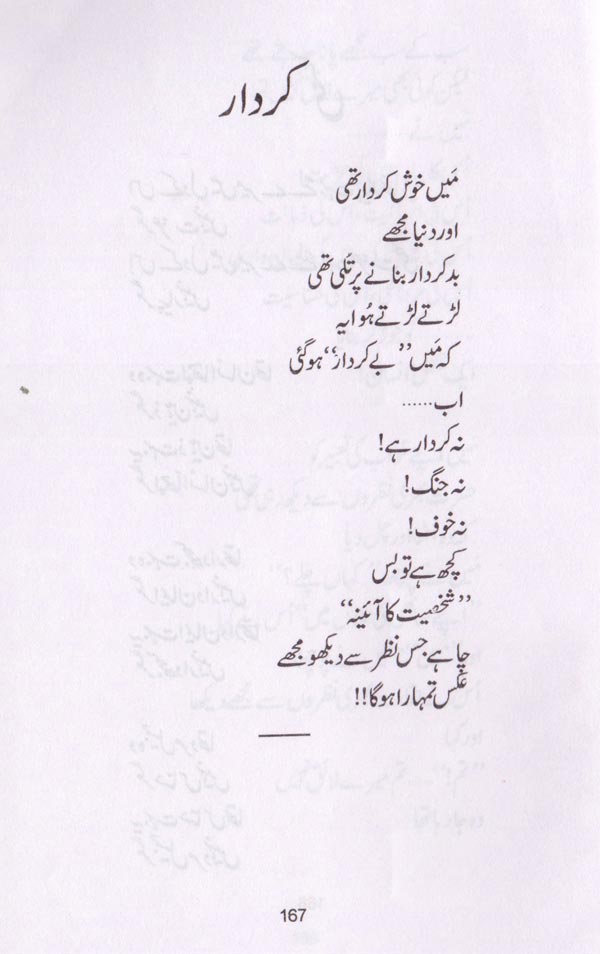 کردار
مَیں خوش کردار تھی
اور دنیا مجھے
بدکردار بنانے پر تُلی تھی
لڑتے لڑتے ہُوا یہ
کہ مَیں ”بے کردار“ ہوگئی
اب ......
نہ کردار ہے!
نہ جنگ!
نہ خوف!
کچھ ہے تو بس
”شخصیت کا آئینہ“
چاہے جس نظر سے دیکھو مجھے
عکس تمہارا ہوگا!!
167